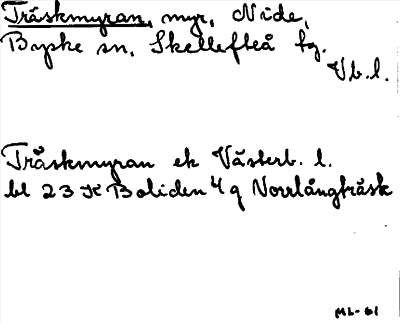 Träskmyran, myr, Nide,
Byske sn, Skellefteå tg.
Vb.l.
Träskmyran ek Västerb. l.
bl 23 K Boliden 4 g Norrlångträsk
ML-61